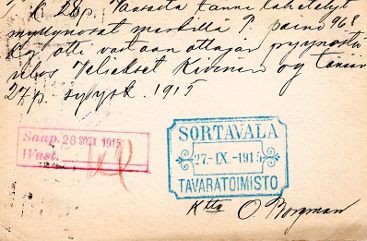 k. 28p. Vaasasta tänne lähetetyt
myllynosat merkillä P. paino 968
Kg otti vastaan ottajan pyynöstä
Veljekset Kivinen Oy tänään
27 p. syysk. 1915
Saap. 28 SYSK 1915
Wast.
SORTAVALA
27-IX.-1915
TAVARATOIMISTO
O Borgman